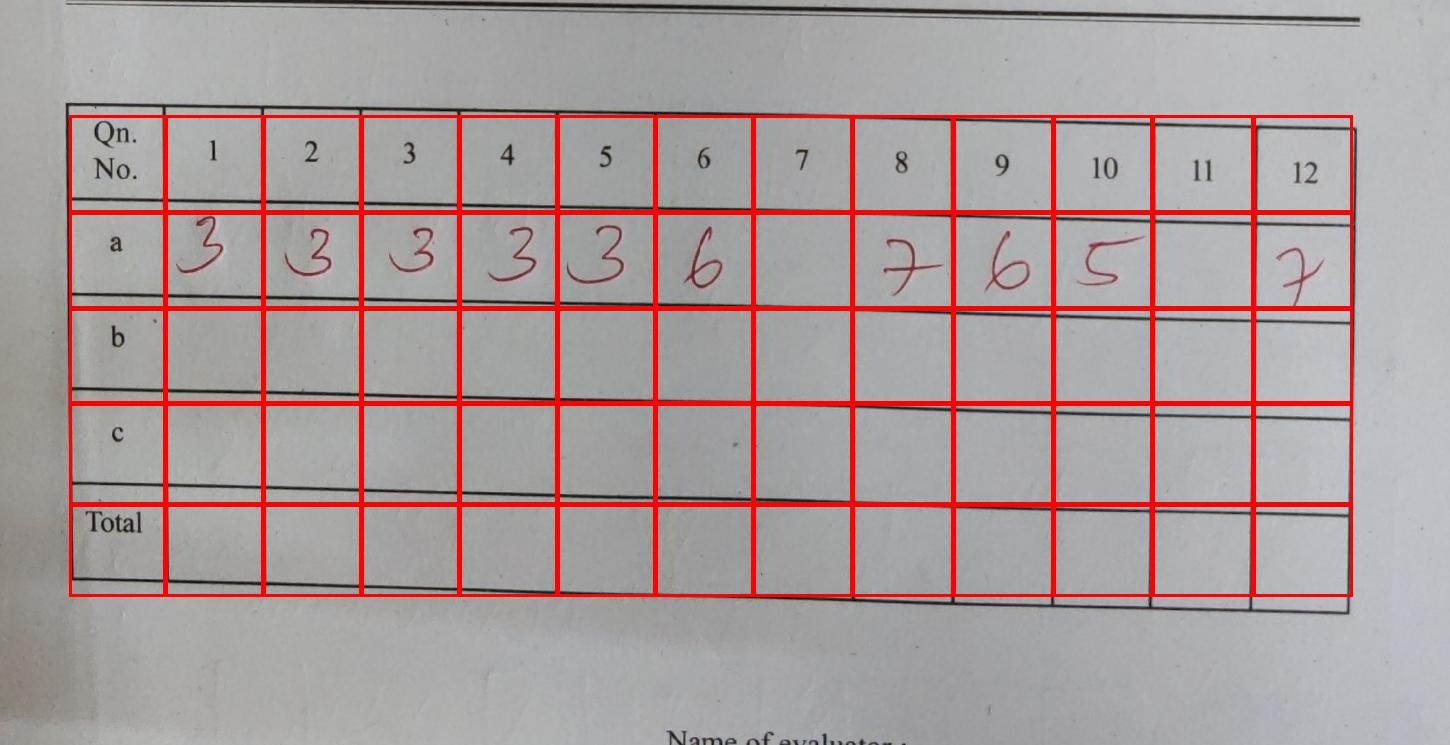 Qn. No. 1 2 3 4 5 6 7 8 9 10 11 12
a 3 3 3 3 3 6 7 6 5 7
b
c
Total
Name of evaluator :